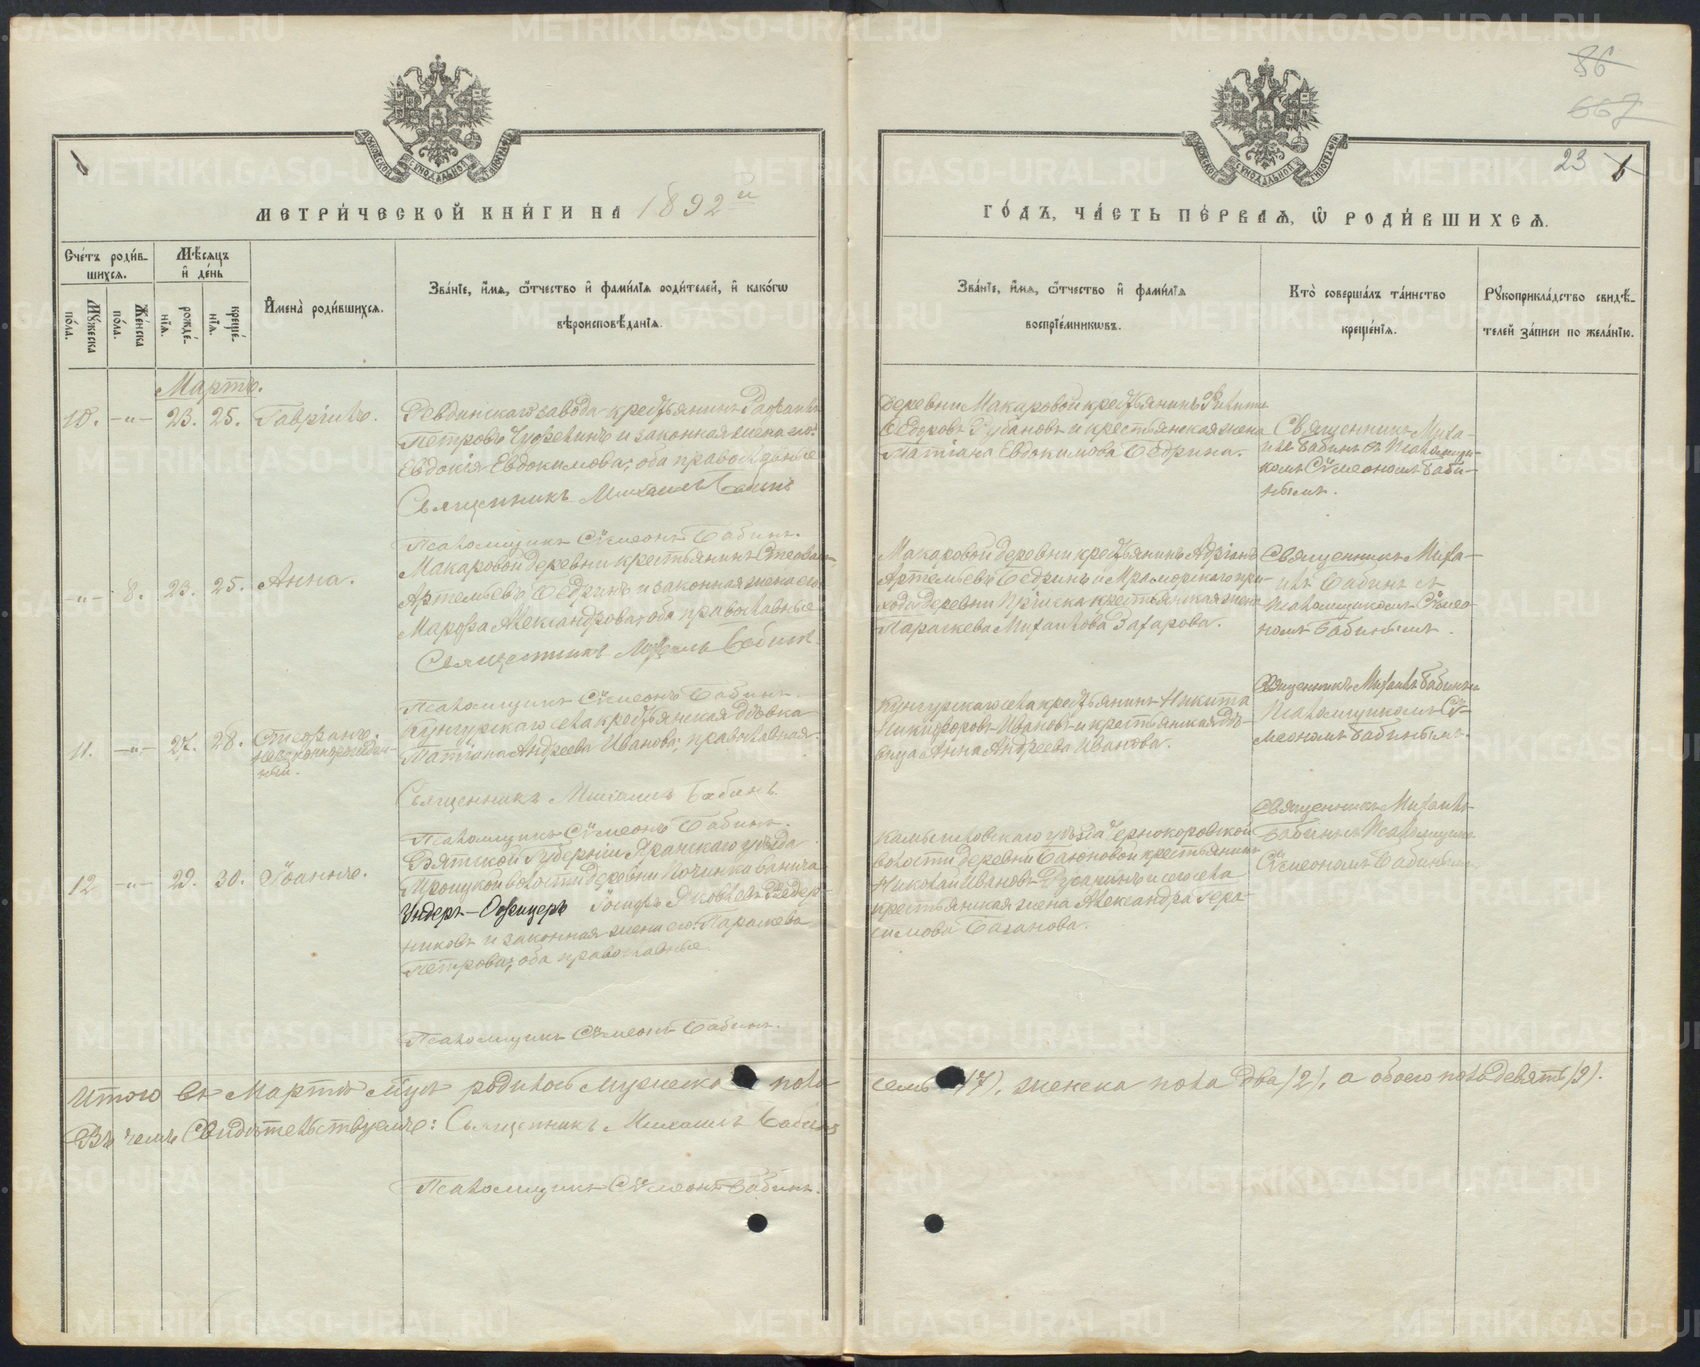 86
667
23
МЕТРИ́ЧЕСКОЙ КНИ́ГИ НА 1892й
ГО́ДЪ, ЧА́СТЬ ПЕ́РВАѦ, Ѡ РОДИ́ВШИХСѦ.
Сче́тъ роди́вшихсѧ.
Мꙋ́жеска по́ла.
Же́нска по́ла.
Мѣ́сѧцъ и҆ де́нь
рожде́нїѧ.
креще́нїѧ.
И҆мена̀ роди́вшихсѧ.
Зва́нїе, и҆́мѧ, ѻ҆́тчество и҆ фами́лїѧ роди́телей, и҆ како́гѡ
вѣроисповѣ́данїѧ.
Зва́нїе, и҆́мѧ, ѻ҆́тчество и҆ фами́лїѧ
воспрїе́мникѡвъ.
Кто̀ соверша́лъ та́инство
креще́нїѧ.
Рꙋкоприкла́дство свидѣ́-
телей за́писи по жела́нїю.
Мартъ.
10. -"- 23. 25. Гавріилъ.
Ревдинскаго завода крестьянинъ
Петровъ и законная жена его
Евдокія Евдокимова, оба православные
Священникъ Михаилъ Бабинъ
Псаломщикъ Сѷмеонъ Бабинъ.
деревни Макаровой крестьянинъ
Ѳедоровъ и крестьянская жена
Татіана Евдокимова Бедрина.
Священникъ Миха-
илъ Бабинъ съ Псаломщи-
комъ Сѷмеономъ Баби-
нымъ.
-"- 8. 23. 25. Анна.
Макаровой деревни крестьянинъ Стефанъ
Артемьевъ Бедринъ и законная жена его
Марѳа Александрова, оба православные
Священникъ Михаилъ Бабинъ
Псаломщикъ Сѷмеонъ Бабинъ.
Макаровой деревни крестьянинъ Адріанъ
Артемьевъ Бедринъ и Мраморскаго при-
хода деревни крестьянская жена
Параскева Михайлова Захарова.
Священникъ Миха-
илъ Бабинъ съ
Псаломщикомъ Сѷмео-
номъ Бабинымъ.
11. -"- 27. 28. Стефанъ.
незаконнорожден-
ный.
Кунгурскаго села крестьянская дѣвка
Татіана Андреева Иванова, православная.
Священникъ Михаилъ Бабинъ.
Псаломщикъ Сѷмеонъ Бабинъ.
Кунгурскаго села крестьянинъ Никита
Никифоровъ Ивановъ и крестьянская дѣ-
вица Анна Андреева Иванова.
Священникъ Михаилъ Бабинъ съ
Псаломщикомъ Сѷ-
меономъ Бабинымъ.
12 -"- 29. 30. Іоаннъ.
Вятской Губерніи Яранскаго уѣзда
Троицкой волости деревни Починка
Ундеръ-Офицеръ Іосифъ Яковлевъ
никовъ и законная жена его Параскева
Петрова, оба православные.
Псаломщикъ Сѷмеонъ Бабинъ.
Камышловскаго уѣзда Чернокоровской
волости деревни крестьянинъ
Николай Ивановъ Русакинъ и сего села
крестьянская жена Александра Гера-
симова Баганова.
Священникъ Михаилъ
Бабинъ съ Псаломщик.
Сѷмеономъ Бабинымъ.
Итого въ Мартѣ мцѣ родилось мужеска пола
семь (7), женска пола два (2), а обоего пола девять (9).
Въ чемъ свидѣтельствуемъ: Священникъ Михаилъ Бабинъ
Псаломщикъ Сѷмеонъ Бабинъ.
METRIKI.GASO-URAL.RU